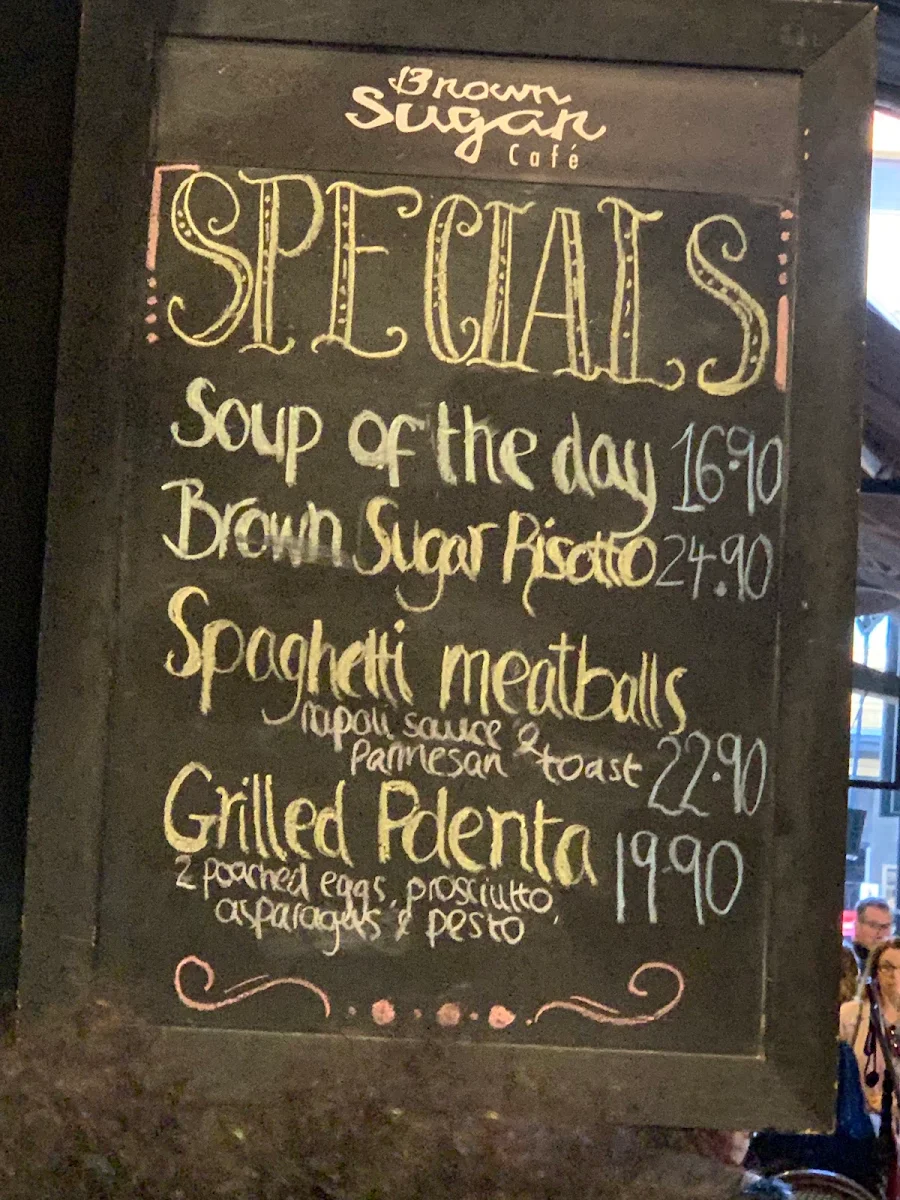 Brown
Sugar
Café
SPECIALS
Soup of the day 16.90
Brown Sugar Risotto 24.90
Spaghetti meatballs
napoli sauce &
Parmesan toast 22.90
Grilled Polenta 19.90
2 poached eggs, prosciutto,
asparagus & pesto